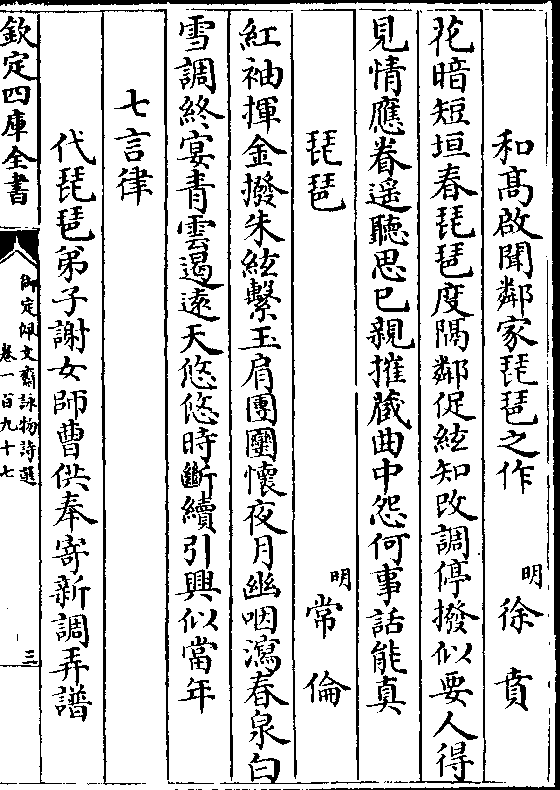 和髙啟聞鄰家琵琶之作 明 徐賁
花暗短垣春琵琶度隔鄰促絃知改調停撥似要人得
見情應眷遥聽思已親摧藏曲中怨何事話能真
琵琶 明 常倫
紅袖揮金撥朱絃繫玉肩團團懷夜月幽咽瀉春泉白
雪調終宴青雲遏逺天悠悠時斷續引興似當年
七言律
代琵琶弟子謝女師曹供奉寄新調弄譜
欽定四庫全書
御定佩文齋詠物詩選
卷一百九十七
三